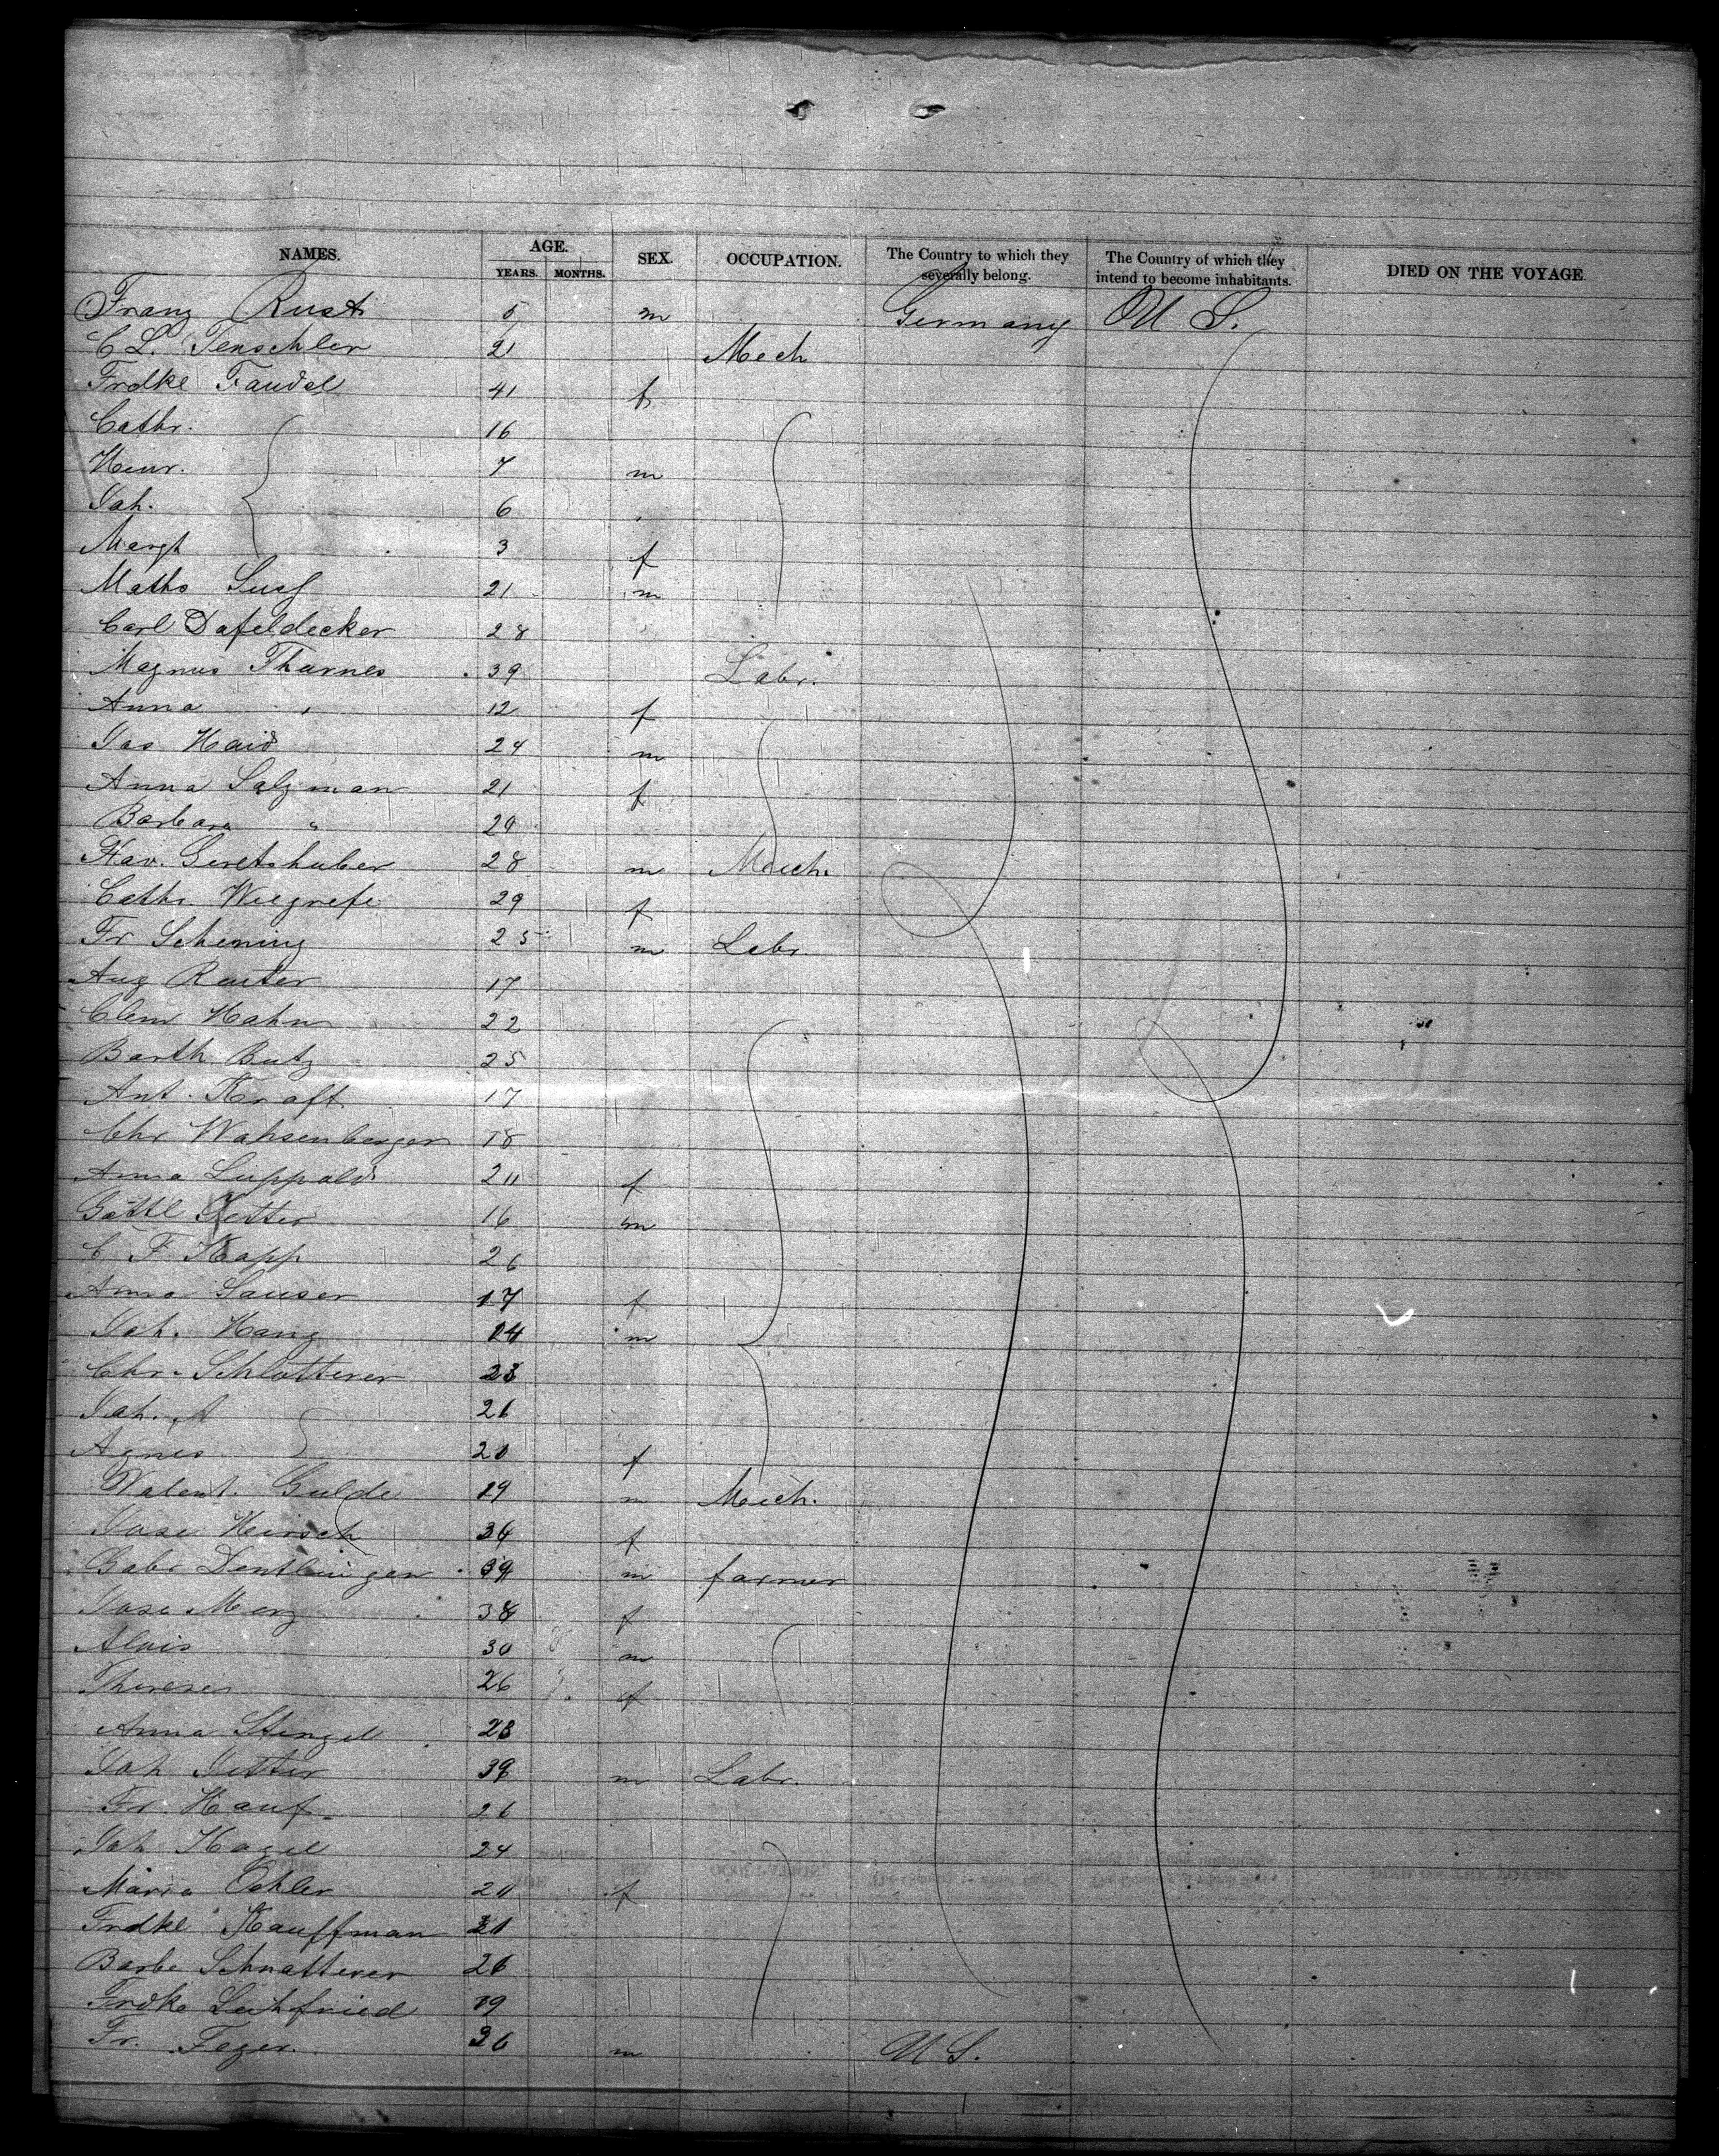 NAMES. AGE. SEX. OCCUPATION. The Country to which they severally belong. The Country of which they intend to become inhabitants. DIED ON THE VOYAGE.
YEARS. MONTHS.
Franz Rust 5 m Germany U S.
C L. Tenschler 21 Mech
Frdke Faudel 41 f
Cathr. 16
Heinr. 7 m
Joh. 6
Margt 3 f
Maths 21 m
Carl Dafeldecker 28
Magnus Tharnes 39 Labr.
Anna " 12 f
Jos Haid 24 m
Anna Salzman 21 f
Barbara " 29
Xav. Geretshuber 28 m Mech.
Cathr Wiegrefe 29 f
Fr Schening 25 m Labr.
Aug Reuter 17
Clem Hahn 22
Barth Butz 25
Ant. Kraft 17
Chr Wahsenberger 18
Anna Luppold 20 f
Gottl Jetter 16 m
C F Kapp 26
Anna Sauser 17 f
Joh. Hang 14 m
Chr. Schlotterer 23
Joh. A 21
Agnes 20 f
Valent. Gulde 19 m Mech.
Josa Hirsch 34 f
Gabr Dentlingen 39 m farmer
Josa Merz 38 f
Alois 30 m
Theresia 26 f
Anna Stengel 23
Joh Jetter 39 m Labr.
Fr. Hauf 26
Joh Hagel 24
Maria Oehler 20 f
Frdke Kauffman 21
Barbe Schnatterer 26
Frdke Leihfried 19
Fr. Feger. 36 m U S.